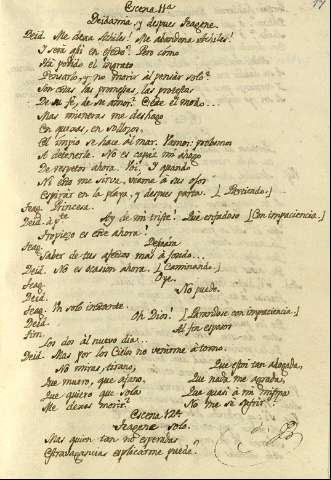 Escena 11ª
Deidamia, y despues Teagene.
Deid. Me dexa Achiles! Me abandona Achiles!
I será asi en efecto? Pero como
Há podido el ingrato
Pensarlo, y no morir al pensar solo?
Son estas las promesas, las protestas
De su fe, de su amor? Cabe el modo...
Mas mientras me deshago
En quexas, en sollozos,
El impio se hace al mar. Vamos: probemos
A detenerle. No es capaz mi ahogo
De respetos ahora. Voi. I quando
Ni esto me sirve, vearme á sus ojos
Espirar en la playa, y despues parta. [Partiendo.]
Teag. Princesa.
Deid. á pte. Ay de mi triste! Que enfadoso [Con impaciencia.]
Tropiezo es este ahora!
Teag. Desearia
Saber de tus afectos mas á fondo...
Deid. No es ocasion ahora. [Caminando.]
Teag. Oye.
Deid. No puedo.
Teag. Un solo instante.
Deid. Oh Dios! [Parandose con impaciencia.]
Al fin esposos
Los dos al nuevo dia...
Deid. Mas por los Cielos no venirme á tomo
No miras, tirano,
Que muero, que afano,
Que quiero que sola
Me dexes morir?
Que estoi tan ahogada,
Que nada me agrada,
Que quasi á mi misma
No me sé sufrir?
Escena 12ª
Teagene solo.
Mas quien tan no esperadas
Estravagancias esplicarme puede?